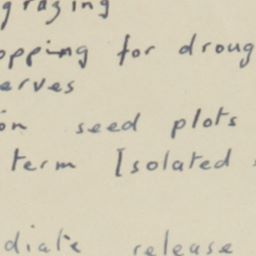 grazing
opping for droug
erves
on seed plots
term [solated
diate release